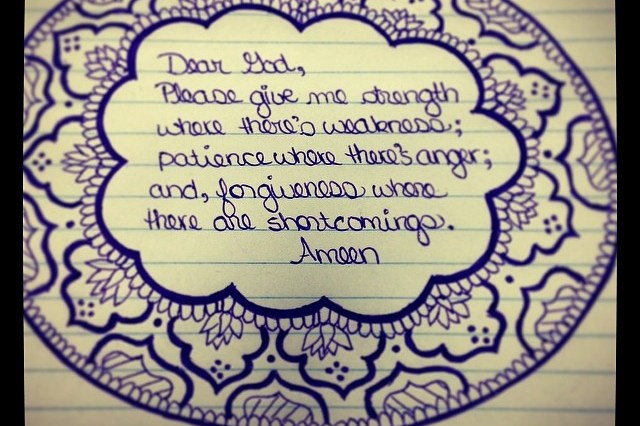 Dear God,
Please give me strength
where there's weakness;
patience where there's anger;
and, forgiveness where
there are shortcomings.
Ameen